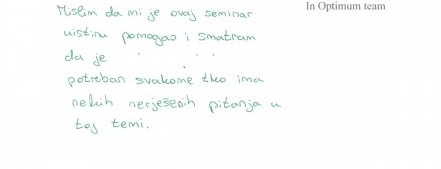 Mislim da mi je ovaj seminar
uistinu pomogao i smatram
da je
potreban svakome tko ima
nekih nerješenih pitanja u
toj temi.
In Optimum team